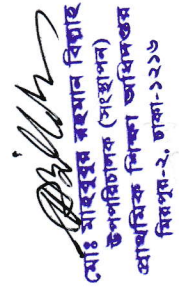 মোঃ মাহবুবুর রহমান বিল্লাহ
উপপরিচালক (সংস্থাপন)
প্রাথমিক শিক্ষা অধিদপ্তর
মিরপুর-২, ঢাকা-১২১৬